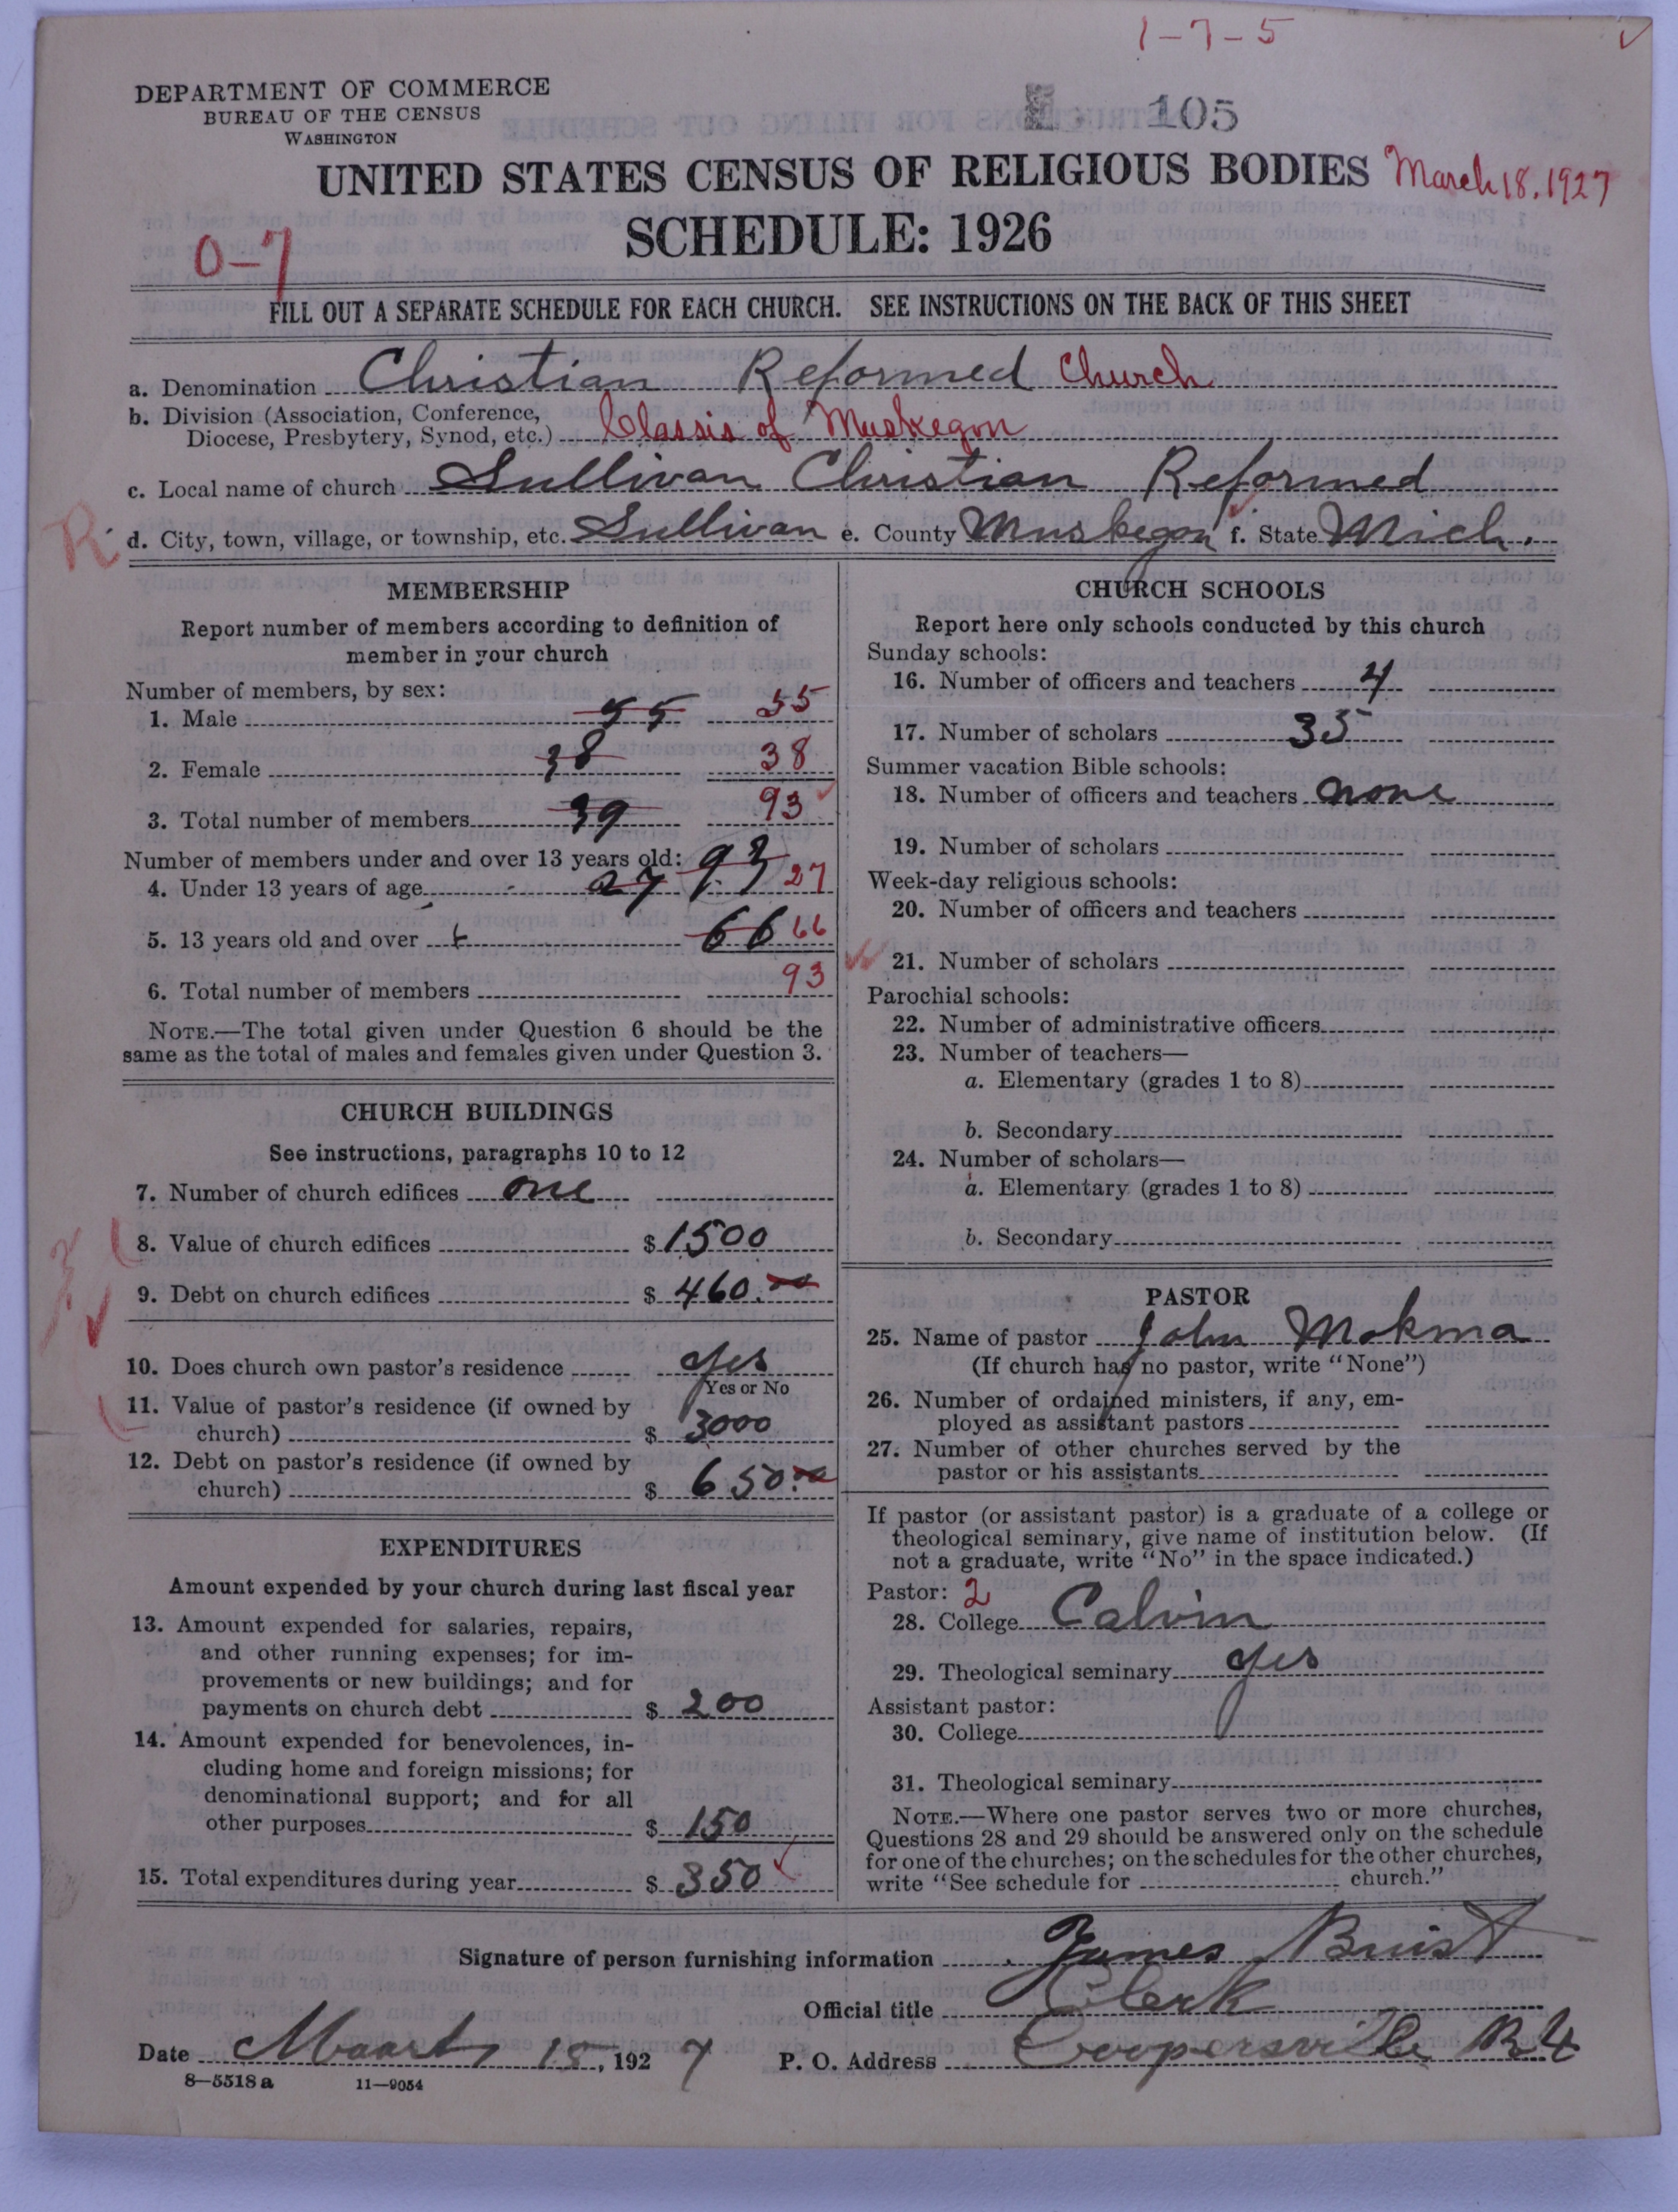 1-7-5
DEPARTMENT OF COMMERCE
BUREAU OF THE CENSUS
WASHINGTON
105
UNITED STATES CENSUS OF RELIGIOUS BODIES March 18, 1927
SCHEDULE: 1926
0-7
FILL OUT A SEPARATE SCHEDULE FOR EACH CHURCH. SEE INSTRUCTIONS ON THE BACK OF THIS SHEET
a. Denomination Christian Reformed Church
b. Division (Association, Conference,
Diocese, Presbytery, Synod, etc.) Classis of Muskegon
c. Local name of church Sullivan Christian Reformed
R
d. City, town, village, or township, etc. Sullivan e. County Muskegon f. State Mich.
MEMBERSHIP
Report number of members according to definition of
member in your church
Number of members, by sex:
1. Male 55 55
2. Female 38 38
3. Total number of members 39 93
Number of members under and over 13 years old: 93
4. Under 13 years of age 27 27
5. 13 years old and over 66 66
6. Total number of members 93
NOTE.—The total given under Question 6 should be the
same as the total of males and females given under Question 3.
CHURCH BUILDINGS
See instructions, paragraphs 10 to 12
7. Number of church edifices one
8. Value of church edifices $ 1500
9. Debt on church edifices $ 460.00
10. Does church own pastor's residence yes
Yes or No
11. Value of pastor's residence (if owned by
church) $ 3000
12. Debt on pastor's residence (if owned by
church) $ 650.00
EXPENDITURES
Amount expended by your church during last fiscal year
13. Amount expended for salaries, repairs,
and other running expenses; for im-
provements or new buildings; and for
payments on church debt $ 200
14. Amount expended for benevolences, in-
cluding home and foreign missions; for
denominational support; and for all
other purposes $ 150
15. Total expenditures during year $ 350
CHURCH SCHOOLS
Report here only schools conducted by this church
Sunday schools:
16. Number of officers and teachers 4
17. Number of scholars 35
Summer vacation Bible schools:
18. Number of officers and teachers none
19. Number of scholars
Week-day religious schools:
20. Number of officers and teachers
21. Number of scholars
Parochial schools:
22. Number of administrative officers
23. Number of teachers—
a. Elementary (grades 1 to 8)
b. Secondary
24. Number of scholars—
a. Elementary (grades 1 to 8)
b. Secondary
PASTOR
25. Name of pastor John Mokma
(If church has no pastor, write "None")
26. Number of ordained ministers, if any, em-
ployed as assistant pastors
27. Number of other churches served by the
pastor or his assistants
If pastor (or assistant pastor) is a graduate of a college or
theological seminary, give name of institution below. (If
not a graduate, write "No" in the space indicated.)
Pastor: 2
28. College Calvin
29. Theological seminary yes
Assistant pastor:
30. College
31. Theological seminary
NOTE.—Where one pastor serves two or more churches,
Questions 28 and 29 should be answered only on the schedule
for one of the churches; on the schedules for the other churches,
write "See schedule for church."
Signature of person furnishing information James Buist
Official title Clerk
Date Maart 15, 1927 P. O. Address Coopersville R4
8—5518a 11—9054